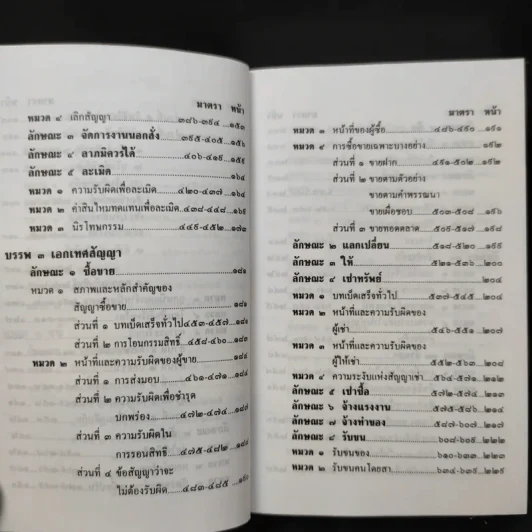 มาตรา หน้า
หมวด ๔ เลิกสัญญา ๓๘๖-๓๙๔...๑๕๑
ลักษณะ ๓ จัดการงานนอกสั่ง ๓๙๕-๔๐๕...๑๕๖
ลักษณะ ๔ ลาภมิควรได้ ๔๐๖-๔๑๙...๑๕๙
ลักษณะ ๕ ละเมิด ๑๖๔
หมวด ๑ ความรับผิดเพื่อละเมิด ๔๒๐-๔๓๗...๑๖๔
หมวด ๒ ค่าสินไหมทดแทนเพื่อละเมิด.๔๓๘-๔๔๘...๑๖๙
หมวด ๓ นิรโทษกรรม ๔๔๙-๔๕๒...๑๗๓
บรรพ ๓ เอกเทศสัญญา
ลักษณะ ๑ ซื้อขาย
หมวด ๑ สภาพและหลักสำคัญของ
สัญญาซื้อขาย
ส่วนที่ ๑ บทเบ็ดเสร็จทั่วไป ๔๕๓-๔๕๗
ส่วนที่ ๒ การโอนกรรมสิทธิ์ ๔๕๘-๔๖๐
หมวด ๒ หน้าที่และความรับผิดของผู้ขาย
ส่วนที่ ๑ การส่งมอบ ๔๖๑-๔๗๑
ส่วนที่ ๒ ความรับผิดเพื่อชำรุด
บกพร่อง ๔๗๒-๔๗๔
ส่วนที่ ๓ ความรับผิดใน
การรอนสิทธิ ๔๗๕-๔๘๒
ส่วนที่ ๔ ข้อสัญญาว่าจะ
ไม่ต้องรับผิด ๔๘๓-๔๘๕
มาตรา หน้า
หมวด ๓ หน้าที่ของผู้ซื้อ ๔๘๖-๔๙๐...๑๙๑
หมวด ๔ การซื้อขายเฉพาะบางอย่าง ๑๙๒
ส่วนที่ ๑ ขายฝาก ๔๙๑-๕๐๒...๑๙๒
ส่วนที่ ๒ ขายตามตัวอย่าง
ขายตามคำพรรณนา
ขายเผื่อชอบ ๕๐๓-๕๐๘...๑๙๖
ส่วนที่ ๓ ขายทอดตลาด ๕๐๙-๕๑๗...๑๙๘
ลักษณะ ๒ แลกเปลี่ยน ๕๑๘-๕๒๐...๑๙๙
ลักษณะ ๓ ให้ ๕๒๑-๕๓๖...๒๐๐
ลักษณะ ๔ เช่าทรัพย์ ๒๐๔
หมวด ๑ บทเบ็ดเสร็จทั่วไป ๕๓๗-๕๔๕...๒๐๔
หมวด ๒ หน้าที่และความรับผิดของ
ผู้เช่า ๕๔๖-๕๕๑...๒๐๗
หมวด ๓ หน้าที่และความรับผิดของ
ผู้ให้เช่า ๕๕๒-๕๖๓...๒๐๘
หมวด ๔ ความระงับแห่งสัญญาเช่า ๕๖๔-๕๗๑...๒๑๒
ลักษณะ ๕ เช่าซื้อ ๕๗๒-๕๗๔...๒๑๓
ลักษณะ ๖ จ้างแรงงาน ๕๗๕-๕๘๖...๒๑๔
ลักษณะ ๗ จ้างทำของ ๕๘๗-๖๐๗...๒๑๗
ลักษณะ ๘ รับขน ๖๐๘-๖๐๙...๒๒๒
หมวด ๑ รับขนของ ๖๑๐-๖๓๓...๒๒๒
หมวด ๒ รับขนคนโดยสาร ๖๓๔-๖๓๙...๒๒๘